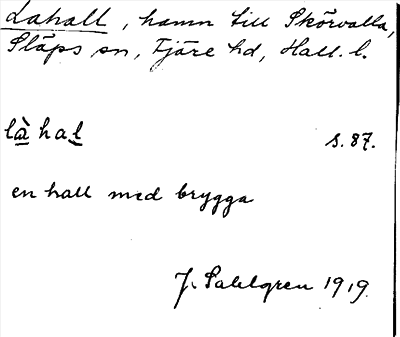 Lahall, hamn till Skörvalla,
Släps sn, Fjäre hd, Hall. l.
làhal s. 87.
en hall med brygga
J. Sahlgren 1919.